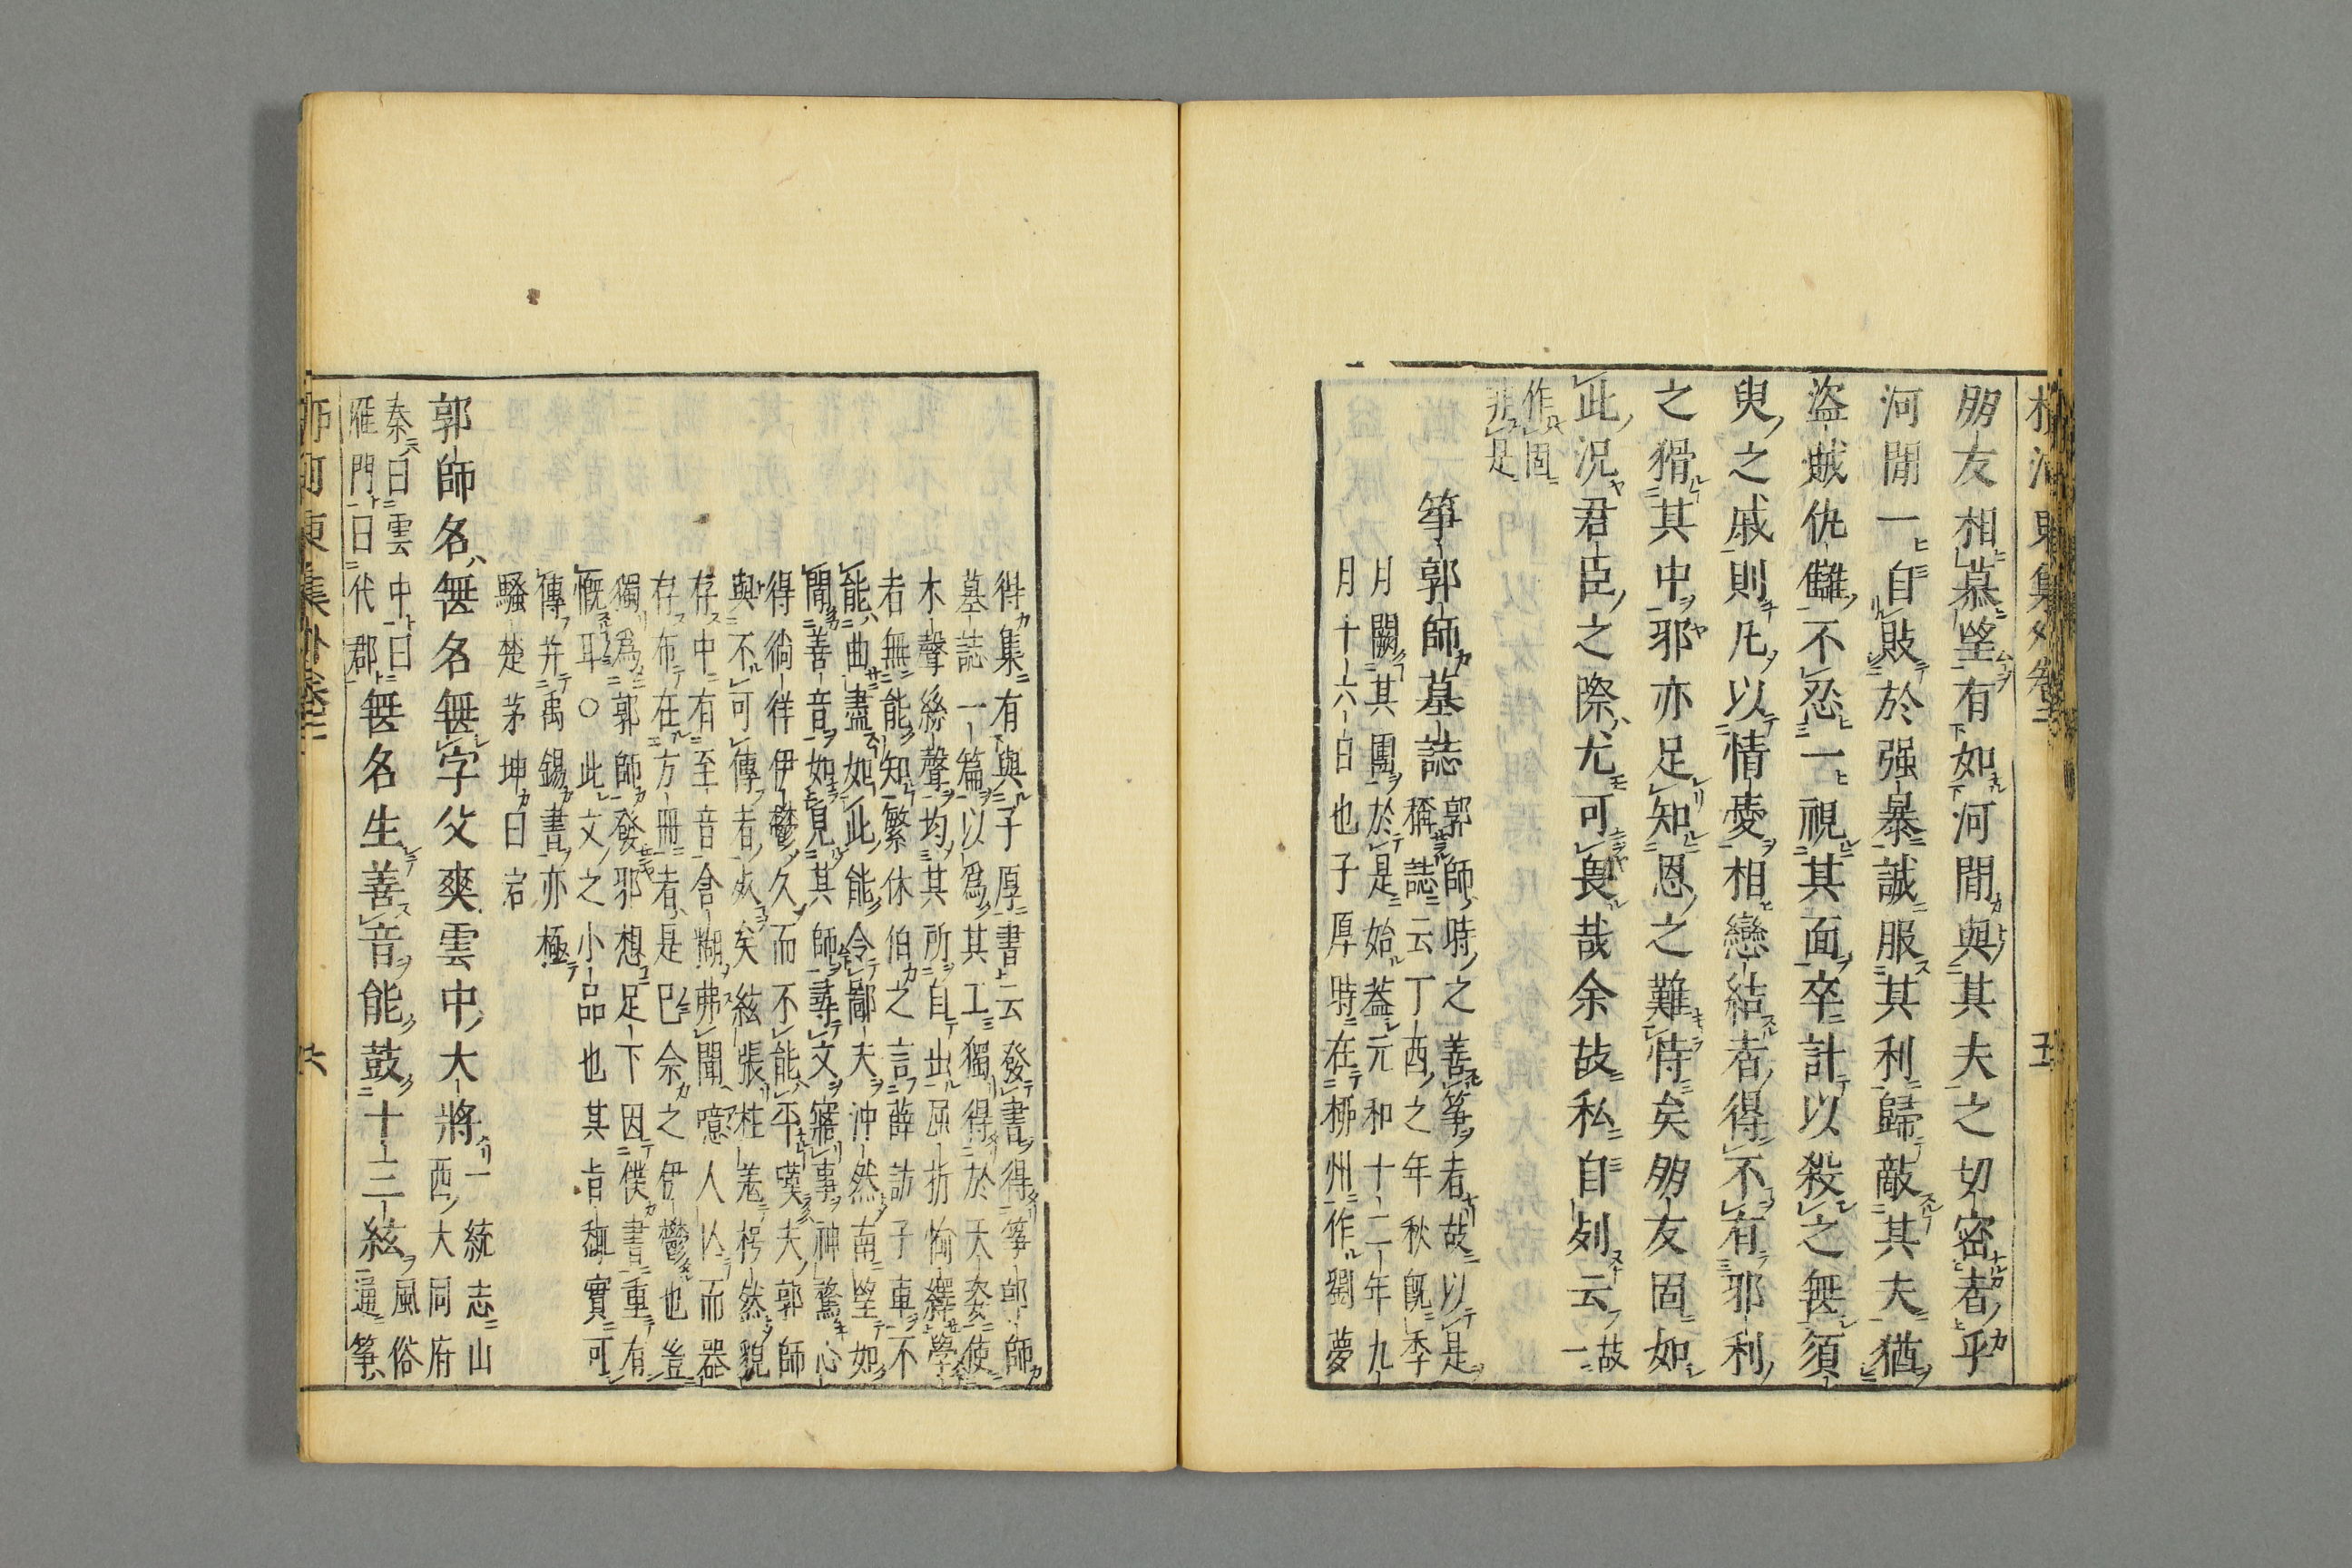 朋友相慕望有如河間與其夫之切密者乎
河間一自敗於强暴誠服其利歸敵其夫猶
盜賊仇讎不忍一視其面卒計以殺之無須
臾之戚則凡以情愛相戀結者得不有邪利
之猾其中邪亦足知恩之難恃矣朋友固如
此況君臣之際尤可畏哉余故私自列云故一
作固
非是
筝郭師墓誌
郭師時之善筝者故以是
稱誌云丁酉之年秋既季
月闕其團於是始蓋元和十二年九
月十六日也子厚時在柳州作劉夢
得集有與子厚書云發書得筝郭師
墓誌一篇以爲其工獨得於天姿使
木聲絲聲均其所自出屈折愉繹學
者無能知繁休伯之言薛訪子車不
能曲盡如此能令鄙夫沖然南望如
聞善音如見其師尋文寤事神驚心
得徜徉伊鬱久而不能平嘆夫郭師
與不可傳者死矣絃張柱差枵然貌
存中有至音含糊弗聞噫人亡而器
存布在方冊者是已余之伊鬱也豈
獨爲郭師發邪想足下因僕書重有
慨耳○此文之小品也其旨蘊實可
傳并禹錫書亦極
騷楚茅坤曰宕
郭師名無名無字父爽雲中大將
一統志山
西大同府
秦曰雲中曰
雁門曰代郡
無名生善音能鼓十三絃
風俗
通筝
柳河東集外卷二
六